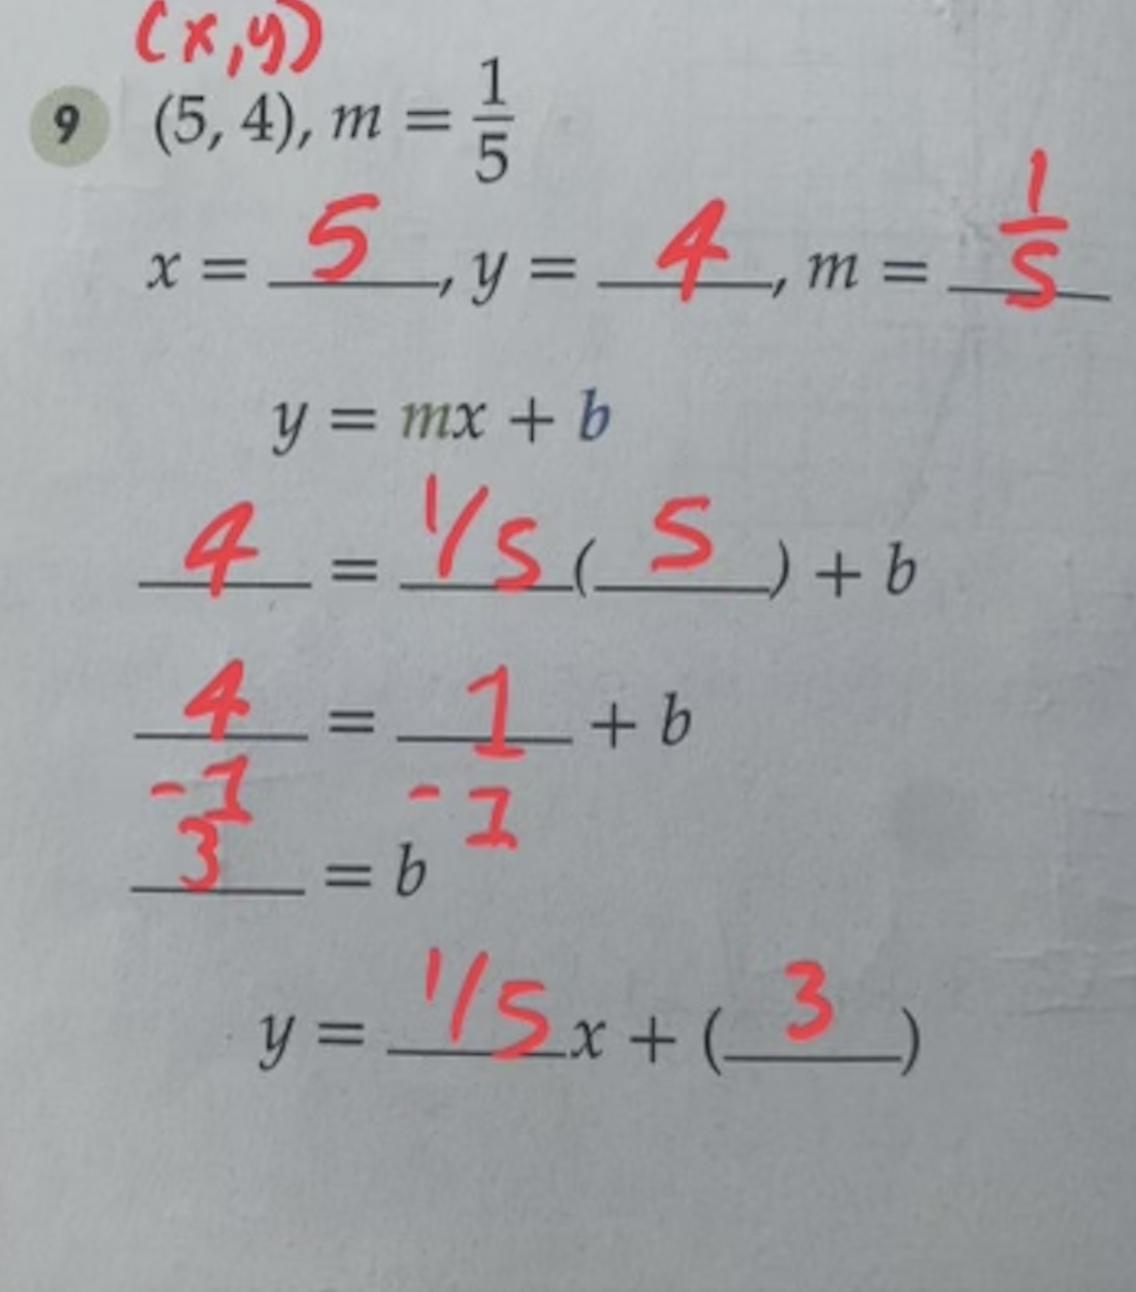 (x,y)
9 (5, 4), m = 1/5
x = 5, y = 4, m = 1/5
y = mx + b
4 = 1/5(5) + b
4 = 1 + b
-1 -1
3 = b
y = 1/5x + (3)